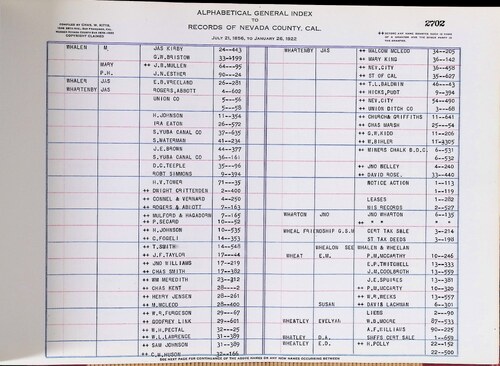 ALPHABETICAL GENERAL INDEX
TO
RECORDS OF NEVADA COUNTY, CAL.
JULY 21, 1856, TO JANUARY 26, 1922
2702
COPYRIGHT CLAIMED
WHALEN M. JAS KIRBY 24--443
G.W.BRISTOW 33--199
MARY ++ J.B.MULLEN 64--95
P.H. J.N.ESTHER 90--24
WHALER JAS E.B.VREELAND 26--281
WHARTENBY JAS ROGERS,ABBOTT 4--602
UNION CO 5---56
5---58
H.JOHNSON 11--354
IRA EATON 26--572
S.YUBA CANAL CO 37--635
S.WATERMAN 41--234
J.E.BROWN 44--377
S.YUBA CANAL CO 36--161
D.C.TEEPLE 35--96
ROBT SIMMONS 9--394
H.V.TONER 71---35
++ DWIGHT CRITTENDEN 2--402
++ CONNEL & VERNARD 4--250
++ ROGERS & ABBOTT 7--163
++ MULFORD & HAGADORN 7--165
++ P.SECARD 10--52
++ H.JOHNSON 10--535
++ C.FOGELI 14--353
++ T.SMITH 14--548
++ J.F.TAYLOR 17---44
++ JNO WILLIAMS 17--219
++ CHAS SMITH 17--382
++ WM MEREDITH 23--312
++ CHAS KENT 28----2
++ HENRY JENSEN 28--261
++ M.MCLEOD 28--400
++ W.R.FURGESON 29--67
++ GODFREY LINK 29--601
++ W.H.PECTAL 32---25
++ W.L.LAWRENCE 31--389
++ SAM JOHNSON 31--389
++ C.M.HUSON 32--166
WHARTENBY JAS ++ MALCOM MCLEOD 34--205
++ MARY KING 36--142
++ NEV.CITY 36--458
++ ST OF CAL 35--627
++ T.L.BALDWIN 46---63
++ HICKS,PUDT 9--394
++ NEV.CITY 54--490
++ UNION DITCH CO 3--68
++ CHURCH& GRIFFITHS 11--641
++ CHAS MARSH 25--54
++ G.W.KIDD 11--206
++ W.BIHLER 11--305
++ MINERS CHALK B.D.C. 6--531
6--532
++ JNO BELLEY 4--240
++ DAVID ROSE, 33--440
NOTICE ACTION 1--113
1--119
LEASES 1--282
MIS RECORDS 2--527
WHARTON JNO JNO WHARTON 6--135
++ ++
WHEAL FRIENDSHIP G.S.M CERT TAX SALE 3--214
ST TAX DEEDS 3--198
WHEALON SEE WHALEN & WHEELAN
WHEAT E.M. P.M.MCCARTHY 10--246
E.P.TWITCHELL 13--333
J.M.COOLBROTH 13--559
J.E.SQUIRES 13--381
++ P.M.MCCARTY 13--320
++ W.R.MEEKS 13--557
SUSAN ++ DAVIS LACHMAN 6--301
LIENS 2--90
WHEATLEY EVELYAN W.D.MOORE 87--533
A.F.HILLIANS 90--225
WHEATLY D.A. SHFFS CERT SALE 1--659
WHEATLEY E.D. ++ H.POLLY 22--152
22--500
SEE NEXT PAGE FOR CONTINUANCE OF THE ABOVE NAMES OR ANY NEW NAMES OCCURRING BETWEEN